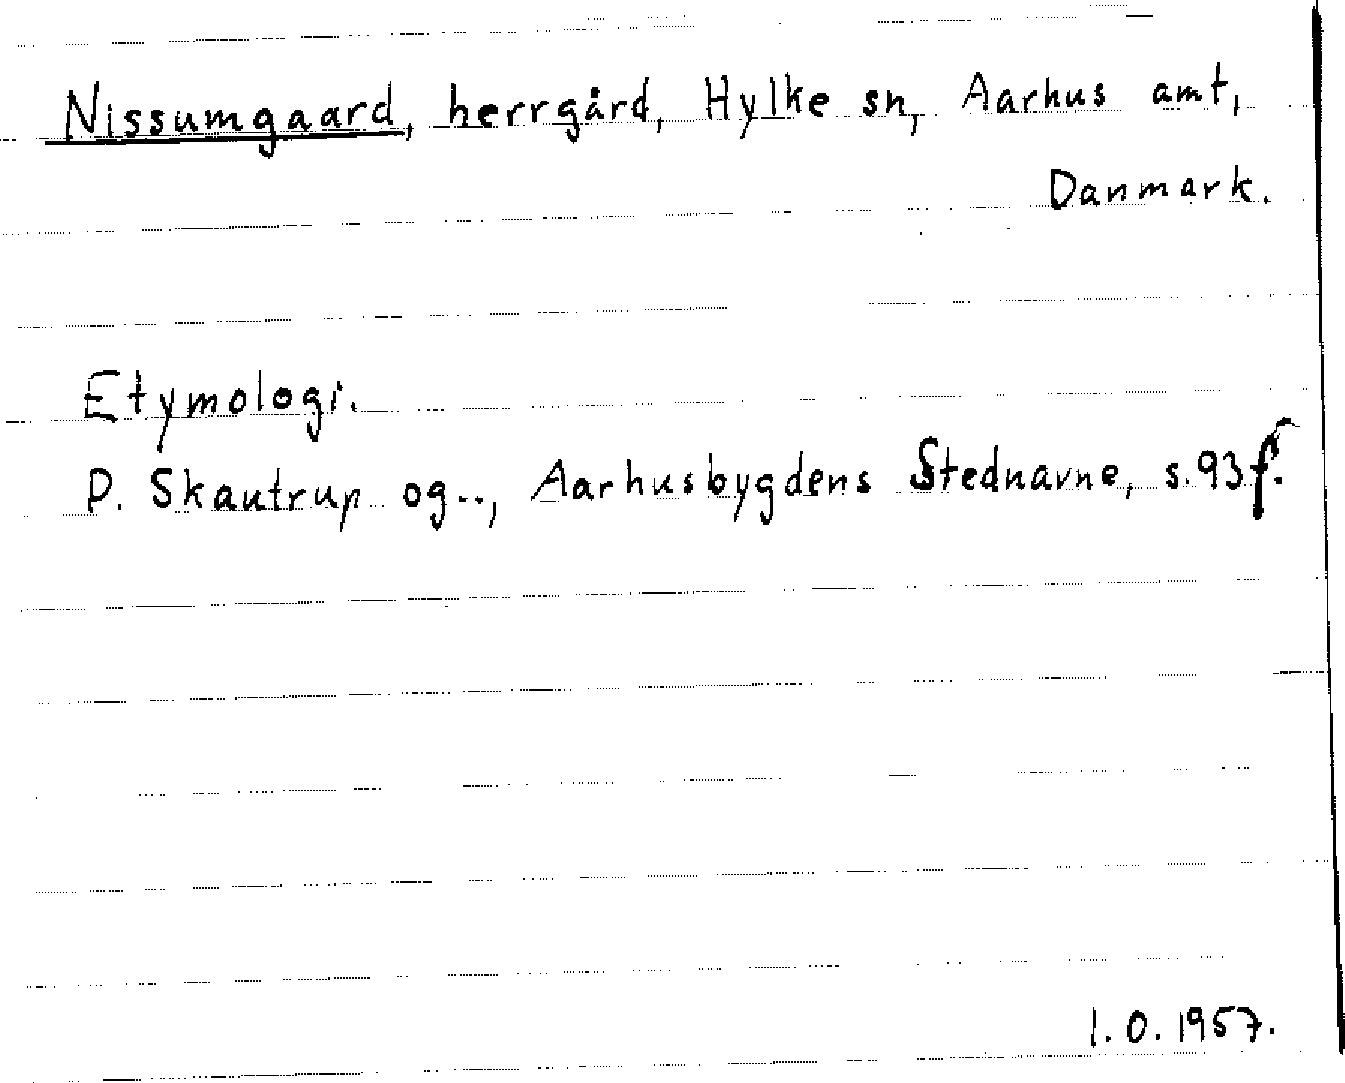 Nissumgaard, herrgård, Hylke sn, Aarhus amt,
Danmark.
Etymologi.
P. Skautrup og.., Aarhusbygdens Stednavne, s. 93 f.
l. O. 1957.